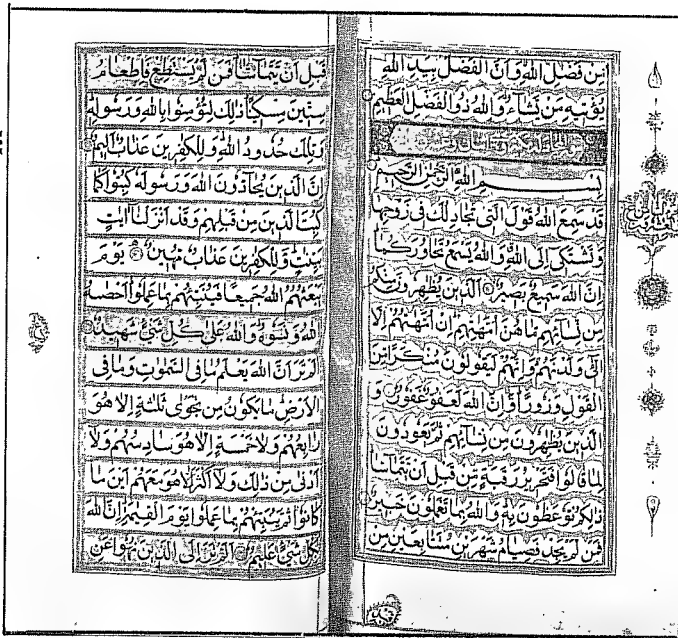 من فضل الله وان الفضل بيد الله
يؤتيه من يشاء والله ذو الفضل العظيم
بسم الله الرحمن الرحيم
قد سمع الله قول التى تجادلك فى زوجها
وتشتكى الى الله والله يسمع تحاوركما
ان الله سميع بصير الذين يظهرون منكم
من نسائهم ما هن امهتهم ان امهتهم الا
الئ ولدنهم وانهم ليقولون منكرا من
القول وزورا وان الله لعفو غفور و
الذين يظهرون من نسائهم ثم يعودون
لما قالوا فتحرير رقبة من قبل ان يتماسا
ذلكم توعظون به والله بما تعملون خبير
فمن لم يجد فصيام شهرين متتابعين من
قبل ان يتماسا فمن لم يستطع فاطعام
ستين مسكينا ذلك لتؤمنوا بالله ورسوله
وتلك حدود الله وللكفرين عذاب اليم
ان الذين يحادون الله ورسوله كبتوا كما
كبت الذين من قبلهم وقد انزلنا ايت
بينت وللكفرين عذاب مهين يوم
يبعثهم الله جميعا فينبئهم بما عملوا احصه
الله ونسوه والله على كل شئ شهيد
الم تر ان الله يعلم ما فى السموت وما فى
الارض ما يكون من نجوى ثلثة الا هو
رابعهم ولا خمسة الا هو سادسهم ولا
ادنى من ذلك ولا اكثر الا هو معهم اين ما
كانوا ثم ينبئهم بما عملوا يوم القيمة ان الله
بكل شئ عليم الم تر الى الذين نهوا عن